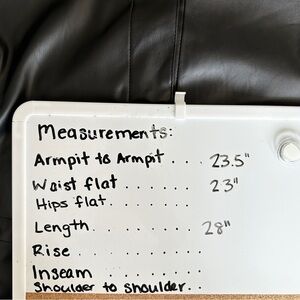 Measurements:
Armpit to Armpit .... 23.5"
Waist flat ........ 23"
Hips flat .......
Length ........ 28"
Rise ..........
Inseam ........
Shoulder to shoulder..